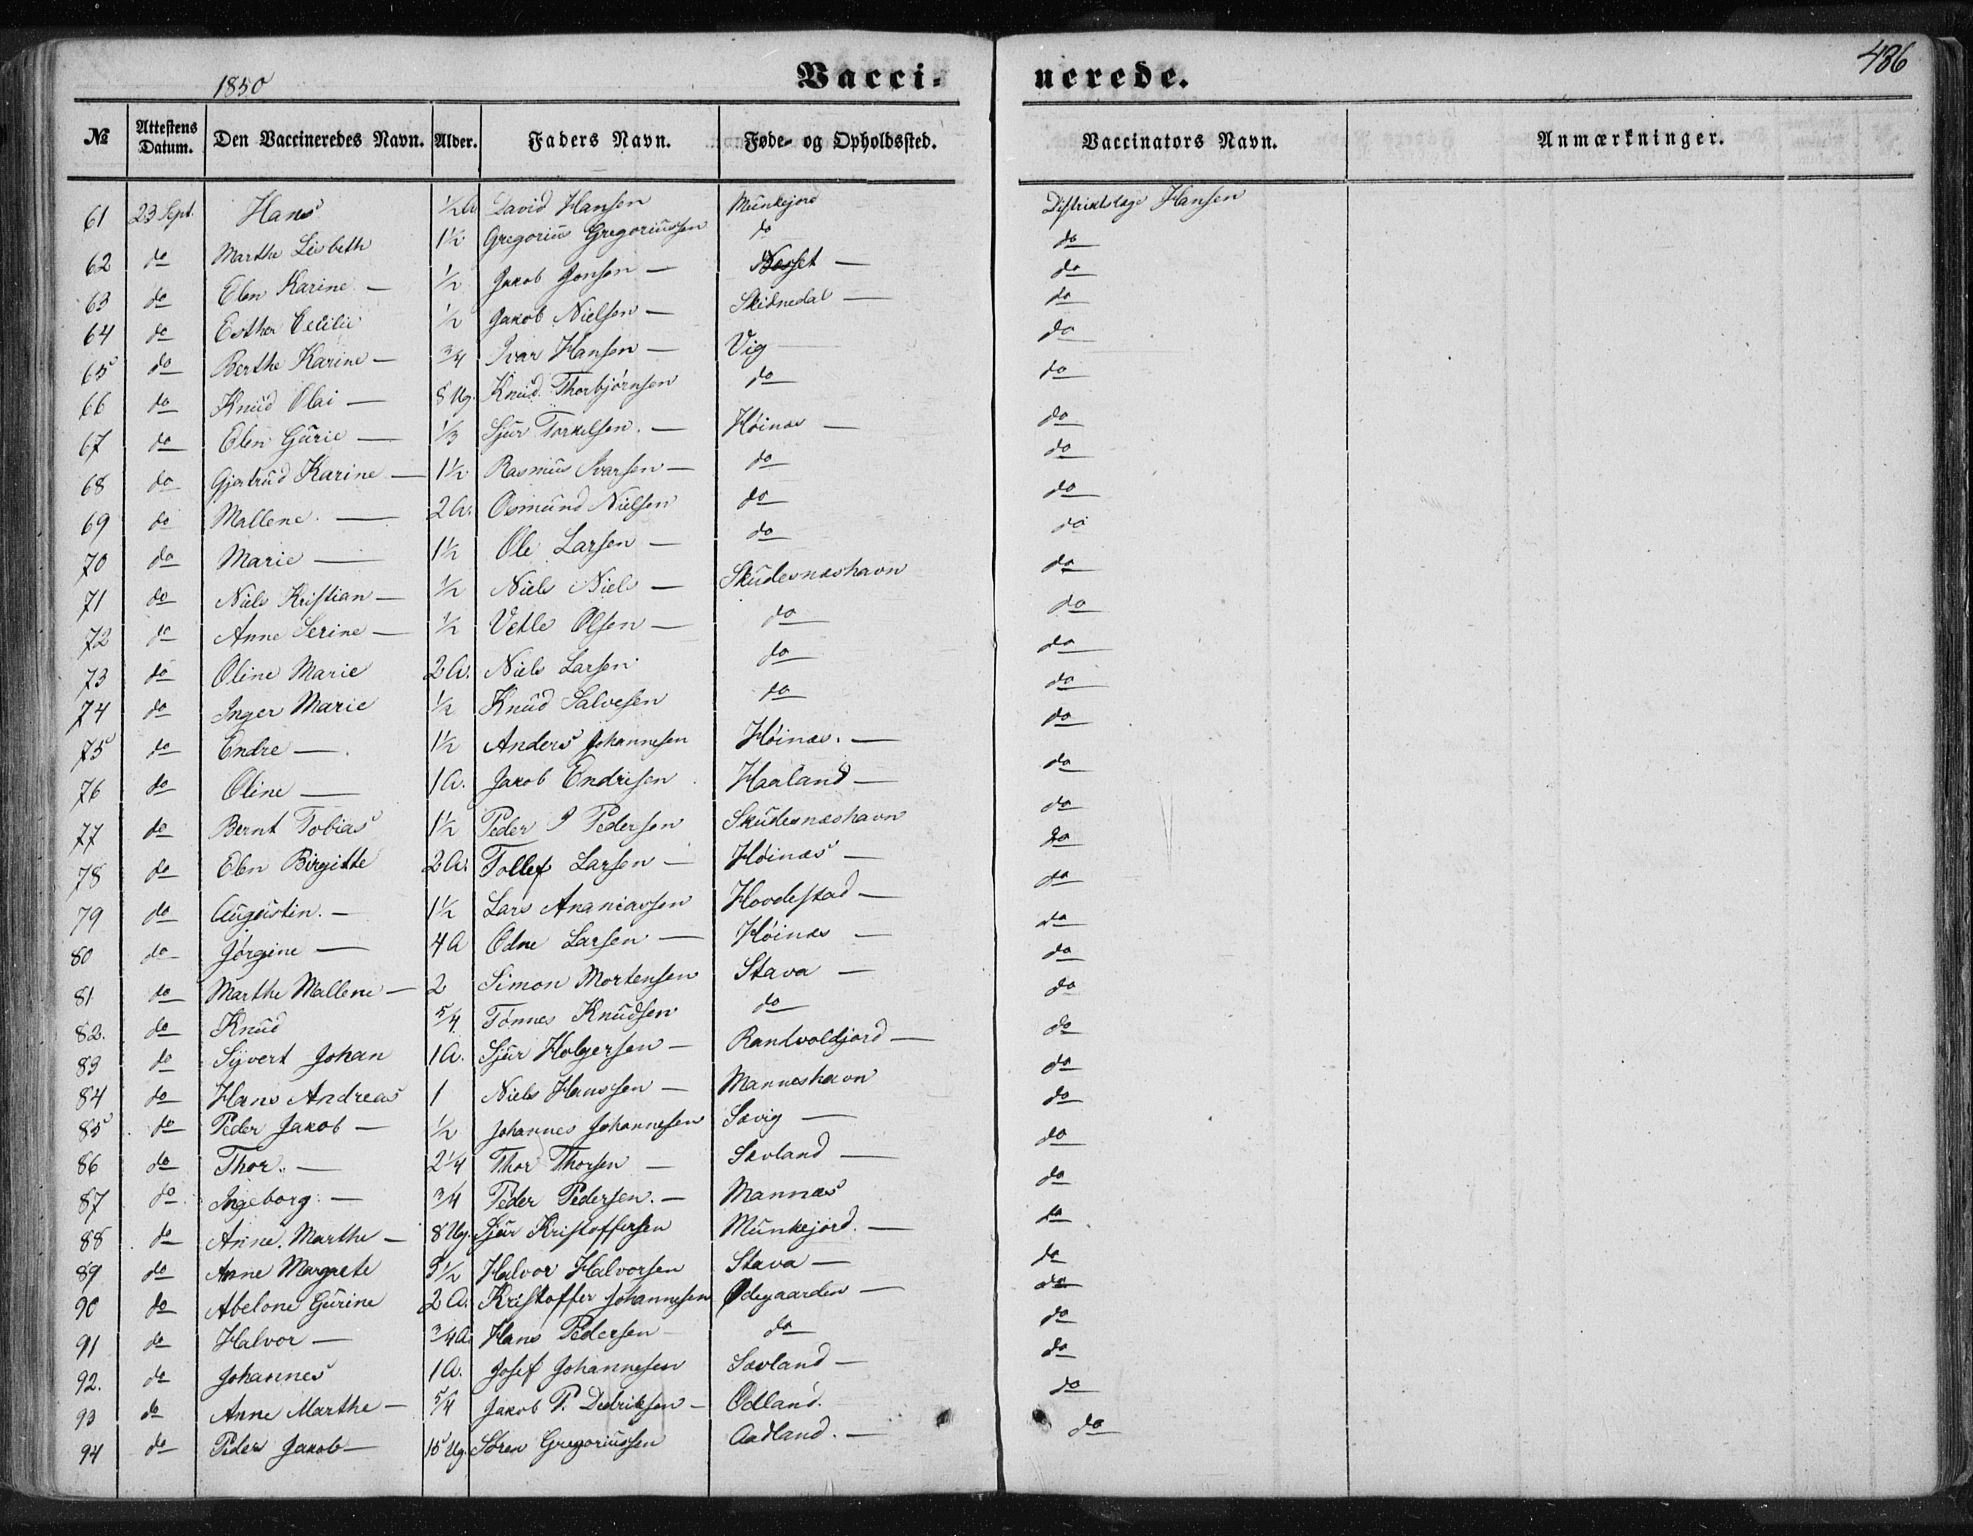 486
1850
Vacci- nerede.
№ Attestens Datum. Den Vaccineredes Navn. Alder. Faders Navn. Føde- og Opholdssted. Vaccinators Navn. Anmærkninger.
61 23 Sept. Hans ½ A David Hansen Munkejord Distriktslæge Hansen
62 do Marthe Lisbeth 1½ Gregorius Gregoriussen do do
63 do Elen Karine — ½ Jakob Jonsen — do
64 do Esther Cecilie ½ Jakob Nielsen — Skidnedal — do
65 do Berthe Karine — 3/4 Ivar Hansen — Vig do
66 do Knud Olai — 8 Ug. Knud Thorbjørnsen do do
67 do Elen Gurie — 1/3 Sjur Torkelsen. — Høinæs — do
68 do Gjertrud Karine — 1½ Rasmus Ivarsen — do do
69 do Mallene. — 2 A. Osmund Nielsen do do
70 do Marie — 1½ Ole Larsen — do do
71 do Niels Kristian — ½ Niels Niels — Skudesnæshavn do
72 do Anne Serine — ½ Vetle Olsen — do do
73 do Oline Marie 2 A. Niels Larsen do do
74 do Inger Marie ½ Knud Salvesen do do
75 do Endre — 1½ Anders Johannesen Høinæs. — do
76 do Oline — 1 A. Jakob Endresen Haaland — do
77 do Bernt Tobias 1½ Peder J Pedersen Skudesnæshavn do
78 do Elen Birgitte 2 A. Tollef Larsen — Høinæs — do
79 do Augustin. — 1½ Lars Ananiassen Hovdestad — do
80 do Jørgine — 4 A Odne Larsen — Høinæs — do
81 do Marthe Mallene — 2 Simon Mortensen Stava — do
82. do Knud 5/4 Tønnes Knudsen do do
83 do Syvert Johan 1 A. Sjur Holgersen — Sandvoldjord — do
84 do Hans Andreas 1 Niels Hanssen — Manneshavn do
85 do Peder Jakob — ½ Johannes Johannesen Søvig — do
86 do Thor. — 2 1/4 Thor Thorsen — Sævland — do
87 do Ingeborg. — 3/4 Peder Pedersen. — Mannæs do
88 do Anne. Marthe — 8 Ug. Sjur Kristoffersen Munkejord. — do
89 do Anne Margrete 3½ Halvor Halvorsen Stava — do
90 do Abelone Gurine 2 A. Kristoffer Johannesen Ødegaarden — do
91 do Halvor — 3/4 A Hans Pedersen do do
92. do Johannes 1 A. Josef Johannesen Sævland — do
93 do Anne Marthe — 5/4 Jakob P. Dedriksen — Odland. do
94 do Peder Jakob — 15 Ug. Søren Gregoriussen Aadland. — do